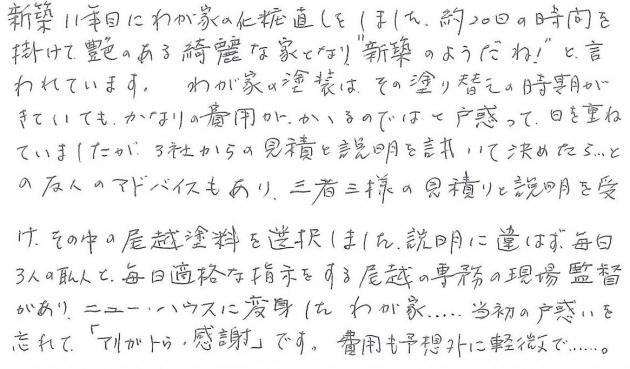 新築11年目にわが家の化粧直しをしました。約20日の時間を
掛けて艶のある綺麗な家となり"新築のようだね!"と言
われています。 わが家の塗装は、その塗り替えの時期が
きていても、かなりの費用が、かかるのではと戸惑って、日を重ね
ていましたが、3社からの見積と説明を聞いて決めたら...と
の友人のアドバイスもあり、三者三様の見積りと説明を受
け、その中の尾越塗料を選択しました。説明に違はず、毎日
3人の職人と、毎日適格な指示をする尾越の専務の現場監督
があり、ニュー・ハウスに変身した わが家..... 当初の戸惑いを
忘れて、「アリガトう・感謝」です。 費用も予想外に軽微で......。